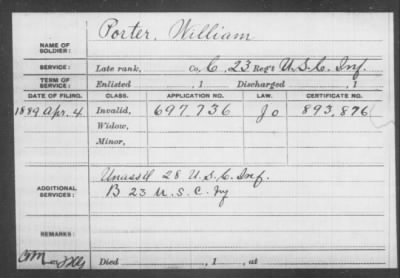 NAME OF SOLDIER: Porter, William
SERVICE: Late rank, Co. C, 23 Reg't U.S.C. Inf.
TERM OF SERVICE: Enlisted , 1 Discharged , 1
DATE OF FILING. CLASS. APPLICATION NO. LAW. CERTIFICATE NO.
1889 Apr. 4. Invalid, 697,736 Jo 893,876
Widow,
Minor,
ADDITIONAL SERVICES:
Unass'd 28 U.S.C. Inf.
B 23 U.S.C. Inf
REMARKS:
Died , 1 , at